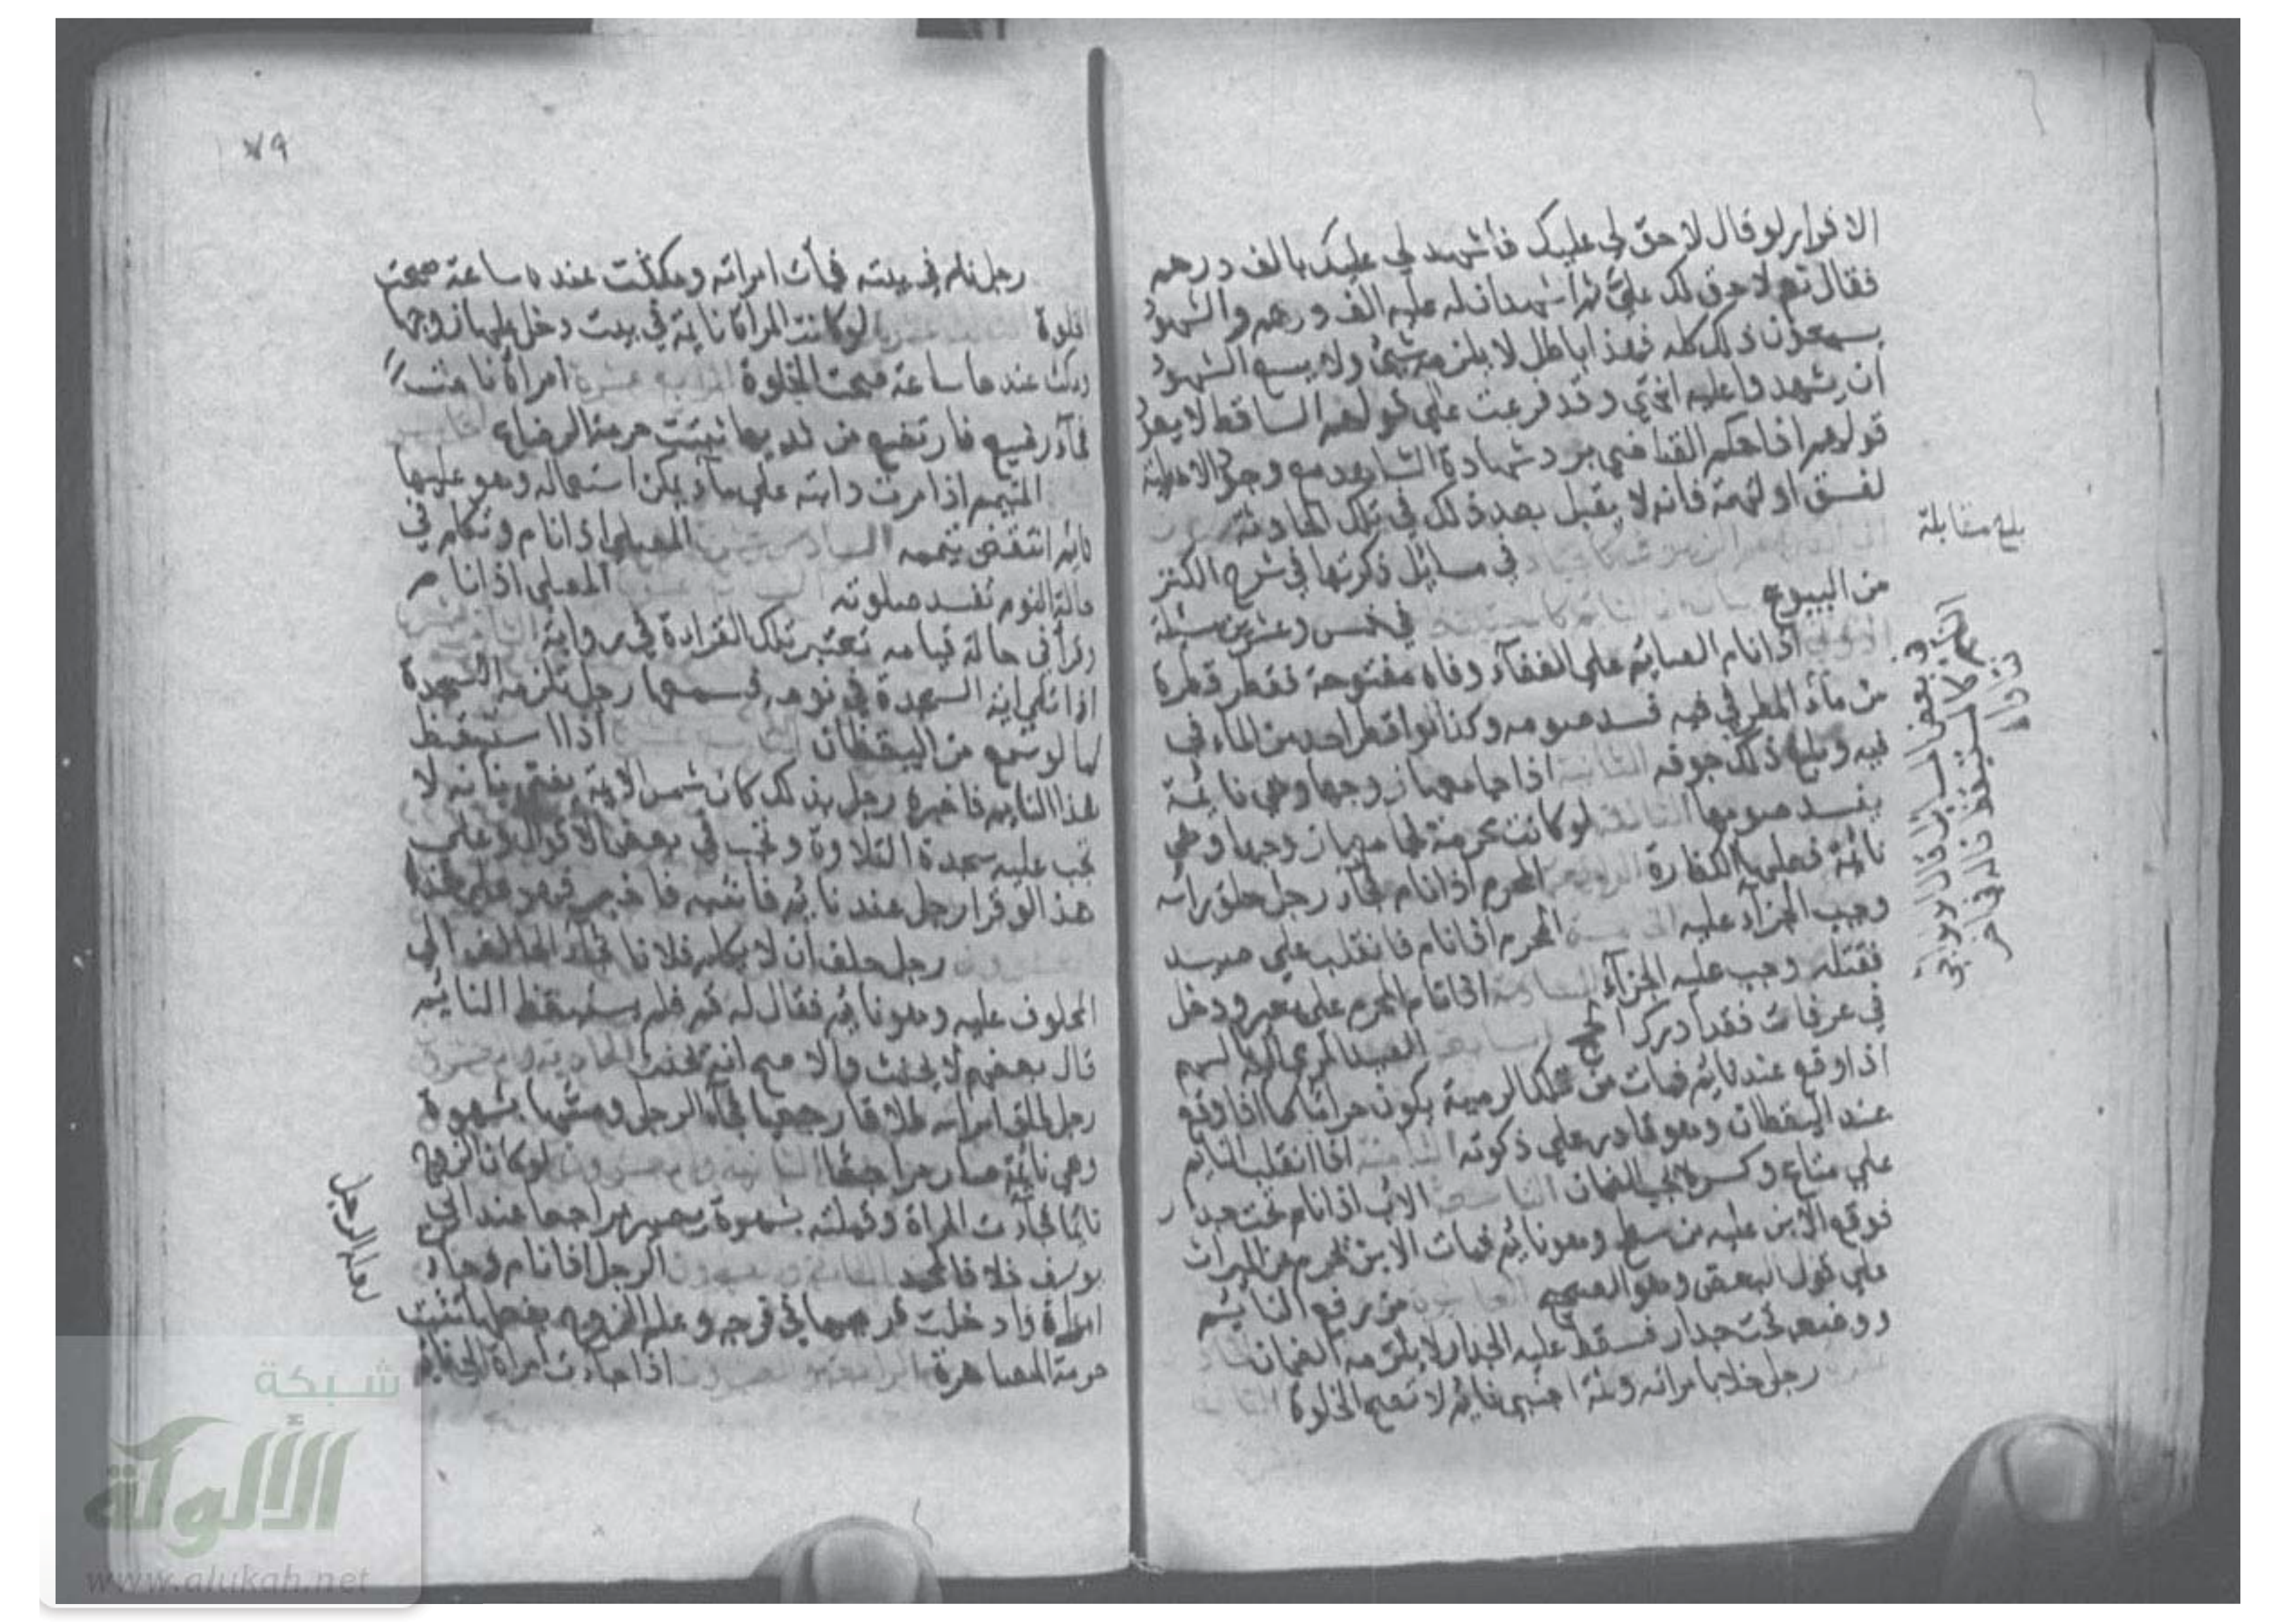 الاقرار لو قال لا حق لي عليك فاشهد لي عليك بالف درهم
فقال نعم لا حق لك علي ثم اشهد ان له عليه الف درهم والشهود
يسمعون ذلك كله فهذا باطل لا يلزمه شيئ ولا يسع الشهود
ان يشهدوا عليه انتهي وقد فرعت علي قولهم الساقط لا يعود
قولهم اذا حكم القاضي برد شهادة الشاهد مع وجود الاهلية
لفسق او لتهمة فانه لا يقبل بعد ذلك في تلك الحادثة
في مسايل ذكرتها في شرح الكنز
من البيوع النائم كالمستيقظ في خمس وعشرين مسئلة
الاولي اذا نام الصايم علي القفاء وفاه مفتوحة فقطر قطرة
من ماء المطر في فيه فسد صومه وكذا لو اقطر احد من الماء في
فيه وبلغ ذلك جوفه الثانية اذا جامعها زوجها وهي نائمة
يفسد صومها الثالثة لو كانت محرمة فجامعها زوجها وهي
نائمة فعليها الكفارة الرابعة المحرم اذا نام فجاء رجل حلق راسه
وجب الجزاء عليه الخامسة المحرم اذا نام فانقلب علي صيد
فقتله وجب عليه الجزاء السادسة اذا نام المحرم علي بعير ودخل
في عرفات فقد ادرك الحج السابعة الصيد المرمي اليه بالسهم
اذا وقع عند نايم فمات من تلك الرمية يكون حراما كما اذا وقع
عند اليقظان وهو قادر علي ذكوته الثامنة اذا انقلب النايم
علي متاع وكسره يجب الضمان التاسعة الاب اذا نام تحت جدار
فوقع الابن عليه من سطح وهو نايم فمات الابن يحرم من الميراث
علي قول البعض وهو الصحيح العاشرة من رفع النايم
ووضعه تحت جدار فسقط عليه الجدار لا يلزمه الضمان
رجل خلا بامراته وثمة اجنبي نايم لا تصح الخلوة
بلغ مقابلة
٧٩
رجل نام في بيته فجأت امراته ومكثت عنده ساعة صحت
الخلوة لو كانت المراة نايمة في بيت دخل عليها زوجها
ومكث عندها ساعة صحت الخلوة الرابع عشرة امراة نامت
فجاء رضيع فارتضع من ثديها تثبت حرمة الرضاع
المتيمم اذا مرت دابته علي ماء يمكن استعماله وهو عليها
نايم انتقض تيممه السادس عشر المصلي اذا نام وتكلم في
حالة النوم تفسد صلوته المصلي اذا نام
وقرأ في حالة قيامه تعتبر تلك القراءة في رواية
اذا تلي اية السجدة في نومه فسمعها رجل تلزمه السجدة
كما لو سمع من اليقظان اذا استيقظ
هذا النايم فاخبره رجل بذلك كان شمس الايمة يفتي بانه لا
تجب عليه سجدة التلاوة وتجب في بعض الاقوال وعلي
هذا لو قرا رجل عند نايم فانتبه فاخبر فهو علي هذا
رجل حلف ان لا يكلم فلانا فجاء الحالف الي
المحلوف عليه وهو نايم فقال له قم فلم يستيقظ النايم
قال بعضهم لا يحنث والاصح انه يحنث
رجل طلق امراته طلاقا رجعيا فجاء الرجل ومسها بشهوة
وهي نائمة صار مراجعا لو كان الزوج
نائما فجاءت المراة وقبلته بشهوة يصير مراجعا عند ابي
يوسف خلافا لمحمد الرجل اذا نام وجاءت
امراة وادخلت فرجها في فرجه وعلم الزوج بفعلها تثبت
حرمة المصاهرة اذا جاءت امراة الي نايم